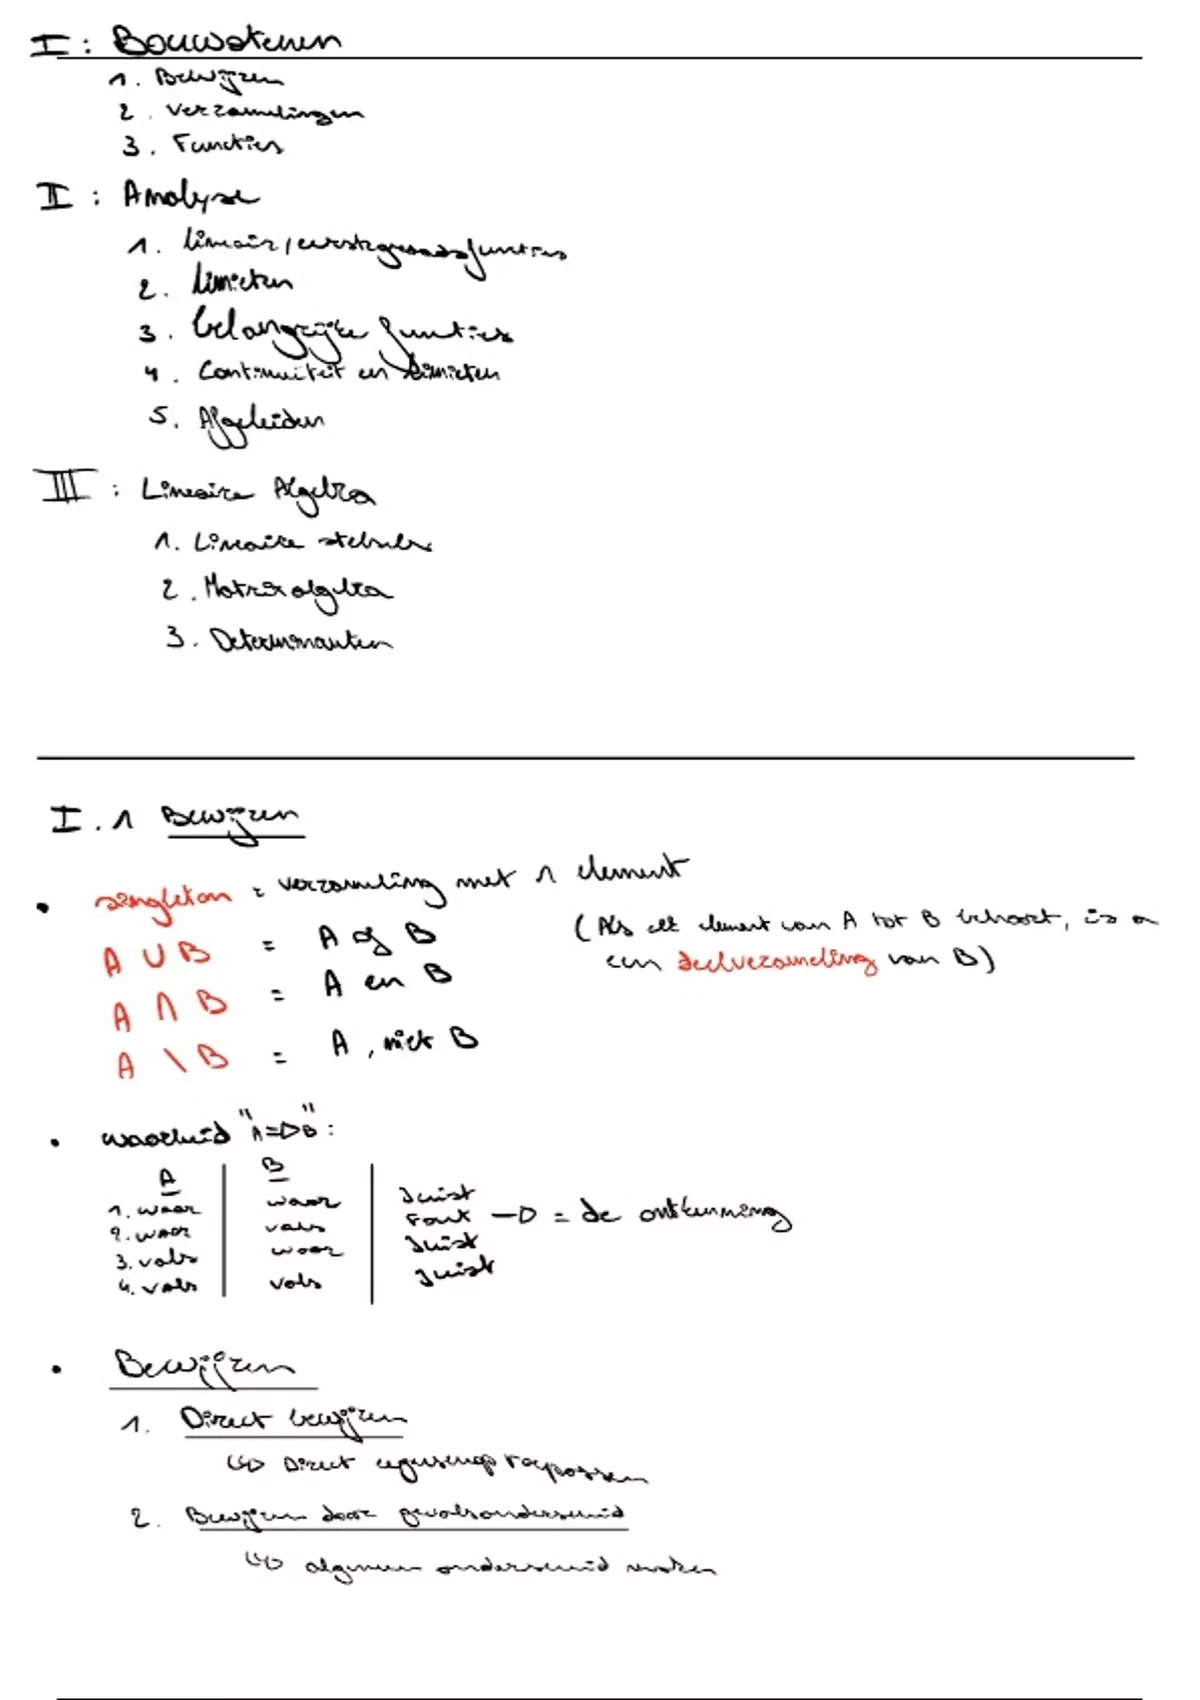 I : Bouwstenen
1. Bewijzen
2. Verzamelingen
3. Functies
II : Analyse
1. lineair/eerstegraadsfuncties
2. limieten
3. belangrijke functies
4. Continuïteit en limieten
5. Afgeleiden
III : Lineaire Algebra
1. Lineaire stelsels
2. Matrixalgebra
3. Determinanten
I.1 Bewijzen
• singleton = verzameling met 1 element
A ∪ B = A of B
(Als elk element van A tot B behoort, is A
een deelverzameling van B)
A ∩ B = A en B
A \ B = A, niet B
• waarheid "A=>B":
A | B |
1. waar | waar | Juist
2. waar | vals | Fout -> = de ontkenning
3. vals | waar | Juist
4. vals | vals | Juist
• Bewijzen
1. Direct bewijzen
↳ Direct eigenschap toepassen
2. Bewijzen door gevalsonderscheid
↳ algemeen onderscheid maken